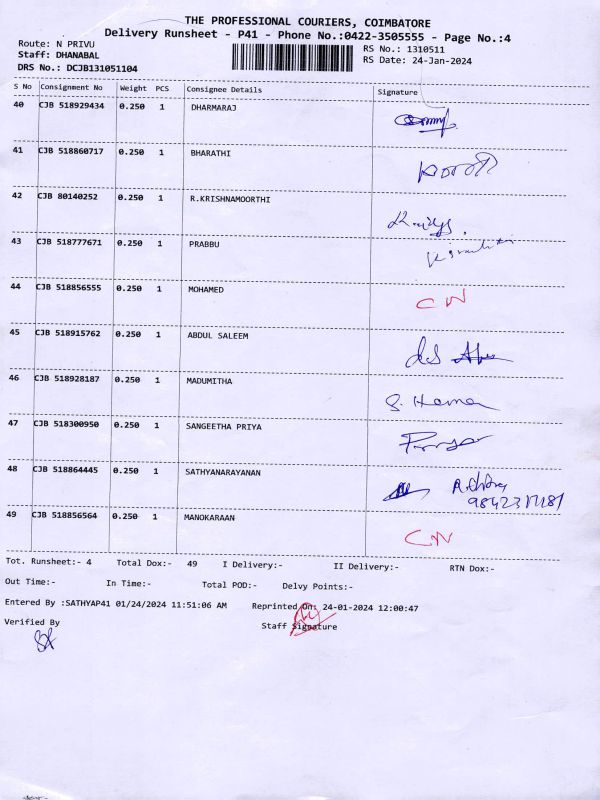 THE PROFESSIONAL COURIERS, COIMBATORE
Delivery Runsheet - P41 - Phone No.:0422-3505555 - Page No.:4
Route: N PRIVU
RS No.: 1310511
Staff: DHANABAL
RS Date: 24-Jan-2024
DRS No.: DCJB131051104
S No Consignment No Weight PCS Consignee Details Signature
40 CJB 518929434 0.250 1 DHARMARAJ
41 CJB 518860717 0.250 1 BHARATHI
42 CJB 80140252 0.250 1 R.KRISHNAMOORTHI
43 CJB 518777671 0.250 1 PRABBU
44 CJB 518856555 0.250 1 MOHAMED CN
45 CJB 518915762 0.250 1 ABDUL SALEEM
46 CJB 518928187 0.250 1 MADUMITHA S. Hema
47 CJB 518300950 0.250 1 SANGEETHA PRIYA
48 CJB 518864445 0.250 1 SATHYANARAYANAN
49 CJB 518856564 0.250 1 MANOKARAAN CN
Tot. Runsheet:- 4 Total Dox:- 49 I Delivery:- II Delivery:- RTN Dox:-
Out Time:- In Time:- Total POD:- Delvy Points:-
Entered By :SATHYAP41 01/24/2024 11:51:06 AM Reprinted On: 24-01-2024 12:00:47
Verified By Staff Signature